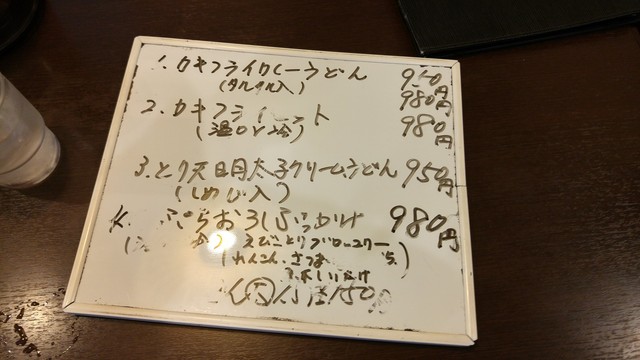 1. カキフライカレーうどん 950円
(タルタル入) 980円
2. カキフライ ット 980円
(温 or 冷)
3. とり天明太子クリームうどん 950円
(しめじ入)
ぷちおろしぶっかけ 980円
えび とり ブロッコリー
れんこん、さつま
しいたけ
150